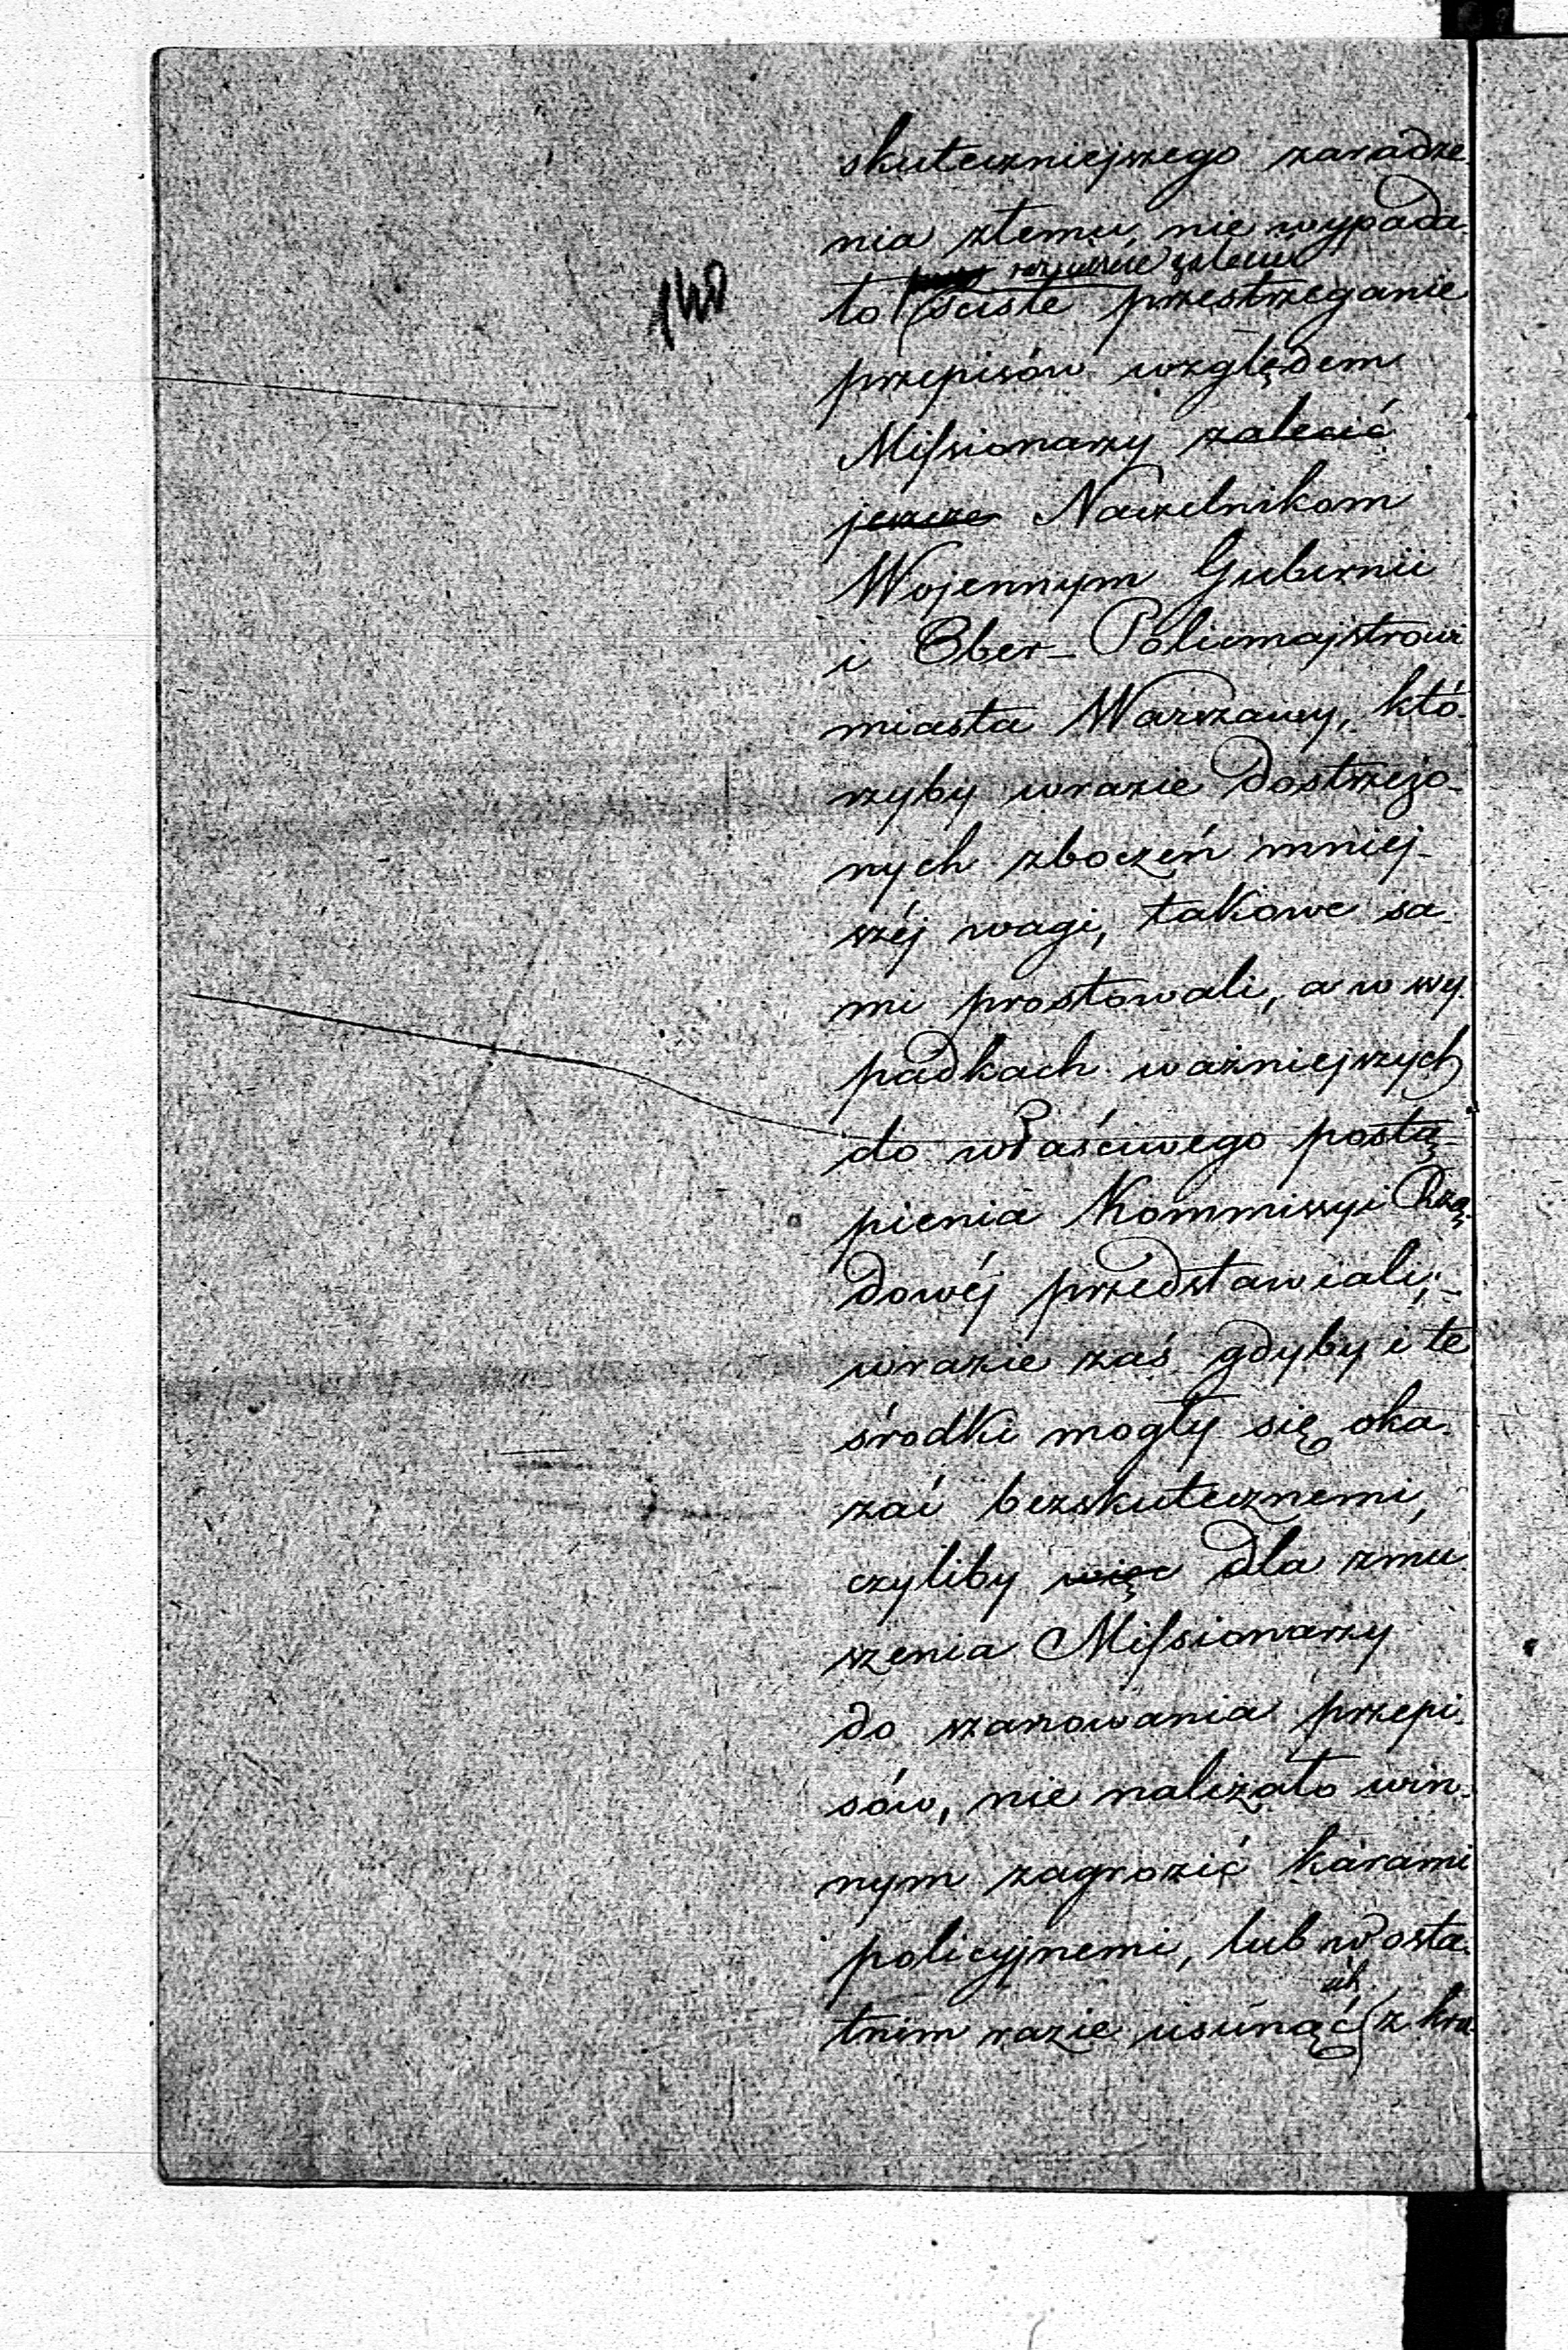 140
skuteczniejszego zaradze-
nia złemu, nie wypada-
zalecić
ło ściśle przestrzeganie
przepisów względem
Missionarzy zalecić
jeszcze Naczelnikom
Wojennym Gubernii
i Ober-Policmajstrowi
miasta Warszawy, któ-
rzyby wrazie dostrzeżo-
nych zboczeń mniej-
széj wagi, takowe sa-
mi prostowali, a w wy-
padkach ważniejszych
do właściwego postą-
pienia Kommissyi Rzą-
dowéj przedstawiali;-
wrazie zaś gdyby i te
środki mogły się oka-
zać bezskutecznemi,
czyliby więc dla zmu-
szenia Missionarzy
do szanowania przepi-
sów, nie należało win-
nym zagrozić karami
policyjnemi, lub w osta-
ich
tnim razie usunąć z kra-